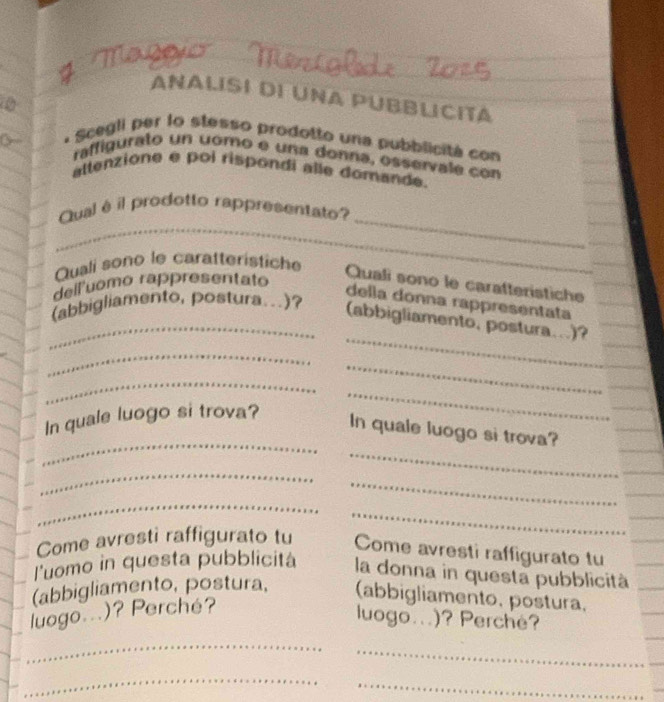 Maggio 2025
ANALISI DI UNA PUBBLICITÀ
• Scegli per lo stesso prodotto una pubblicità con
raffigurato un uomo e una donna, osservale con
attenzione e poi rispondi alle domande.
Qual è il prodotto rappresentato?
Quali sono le caratteristiche
dell'uomo rappresentato
(abbigliamento, postura...)?
Quali sono le caratteristiche
della donna rappresentata
(abbigliamento, postura...)?
In quale luogo si trova?
In quale luogo si trova?
Come avresti raffigurato tu
l'uomo in questa pubblicità
(abbigliamento, postura,
luogo...)? Perché?
Come avresti raffigurato tu
la donna in questa pubblicità
(abbigliamento, postura,
luogo...)? Perché?